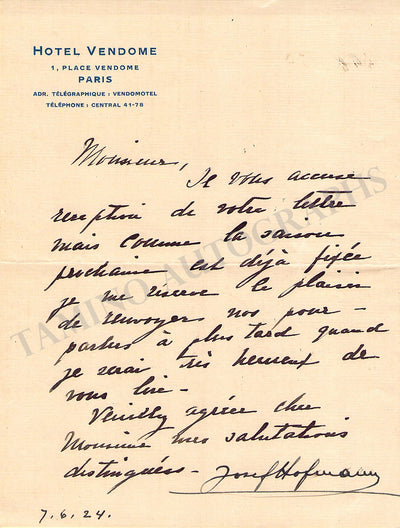 HOTEL VENDOME
1, PLACE VENDOME
PARIS
ADR. TÉLÉGRAPHIQUE : VENDOMOTEL
TÉLÉPHONE : CENTRAL 41-78
Monsieur,
Je vous accuse
reception de votre lettre
mais comme la saison
prochaine est déjà fixée
je me reserve le plaisir
de renvoyer nos pour-
parlers à plus tard quand
je serai très heureux de
vous lire -
Veuillez agréer cher
Monsieur mes salutations
distinguées - Josef Hofmann
7.6.24.
TAMINO AUTOGRAPHS